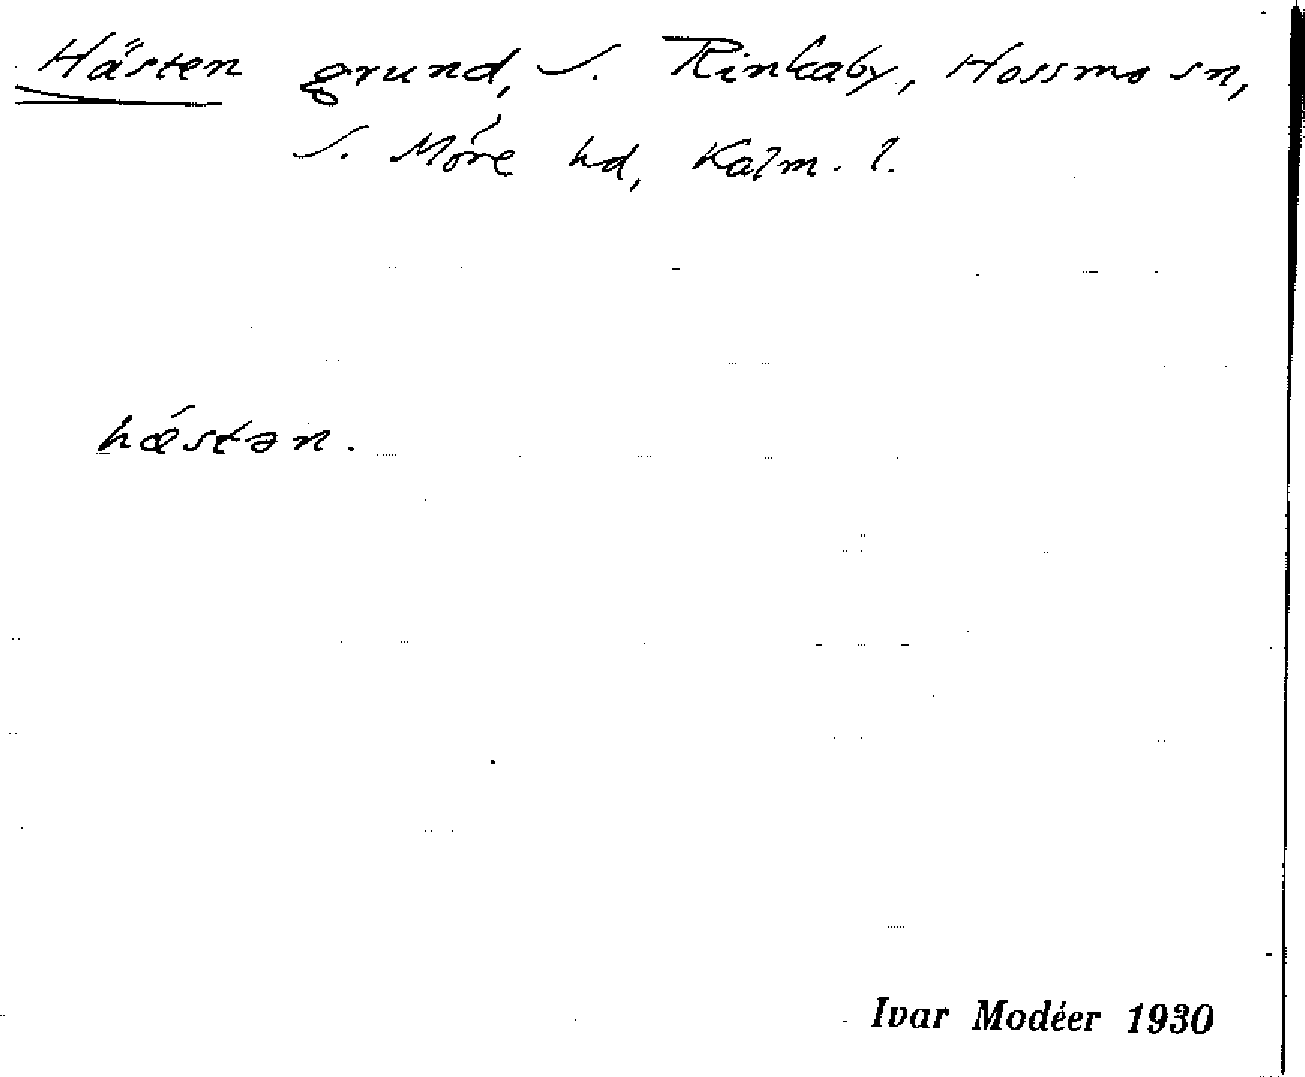 Hästen grund, S. Rinkaby, Hossmo sn,
S. Möre hd, Kalm. l.
hǽstən.
Ivar Modéer 1930